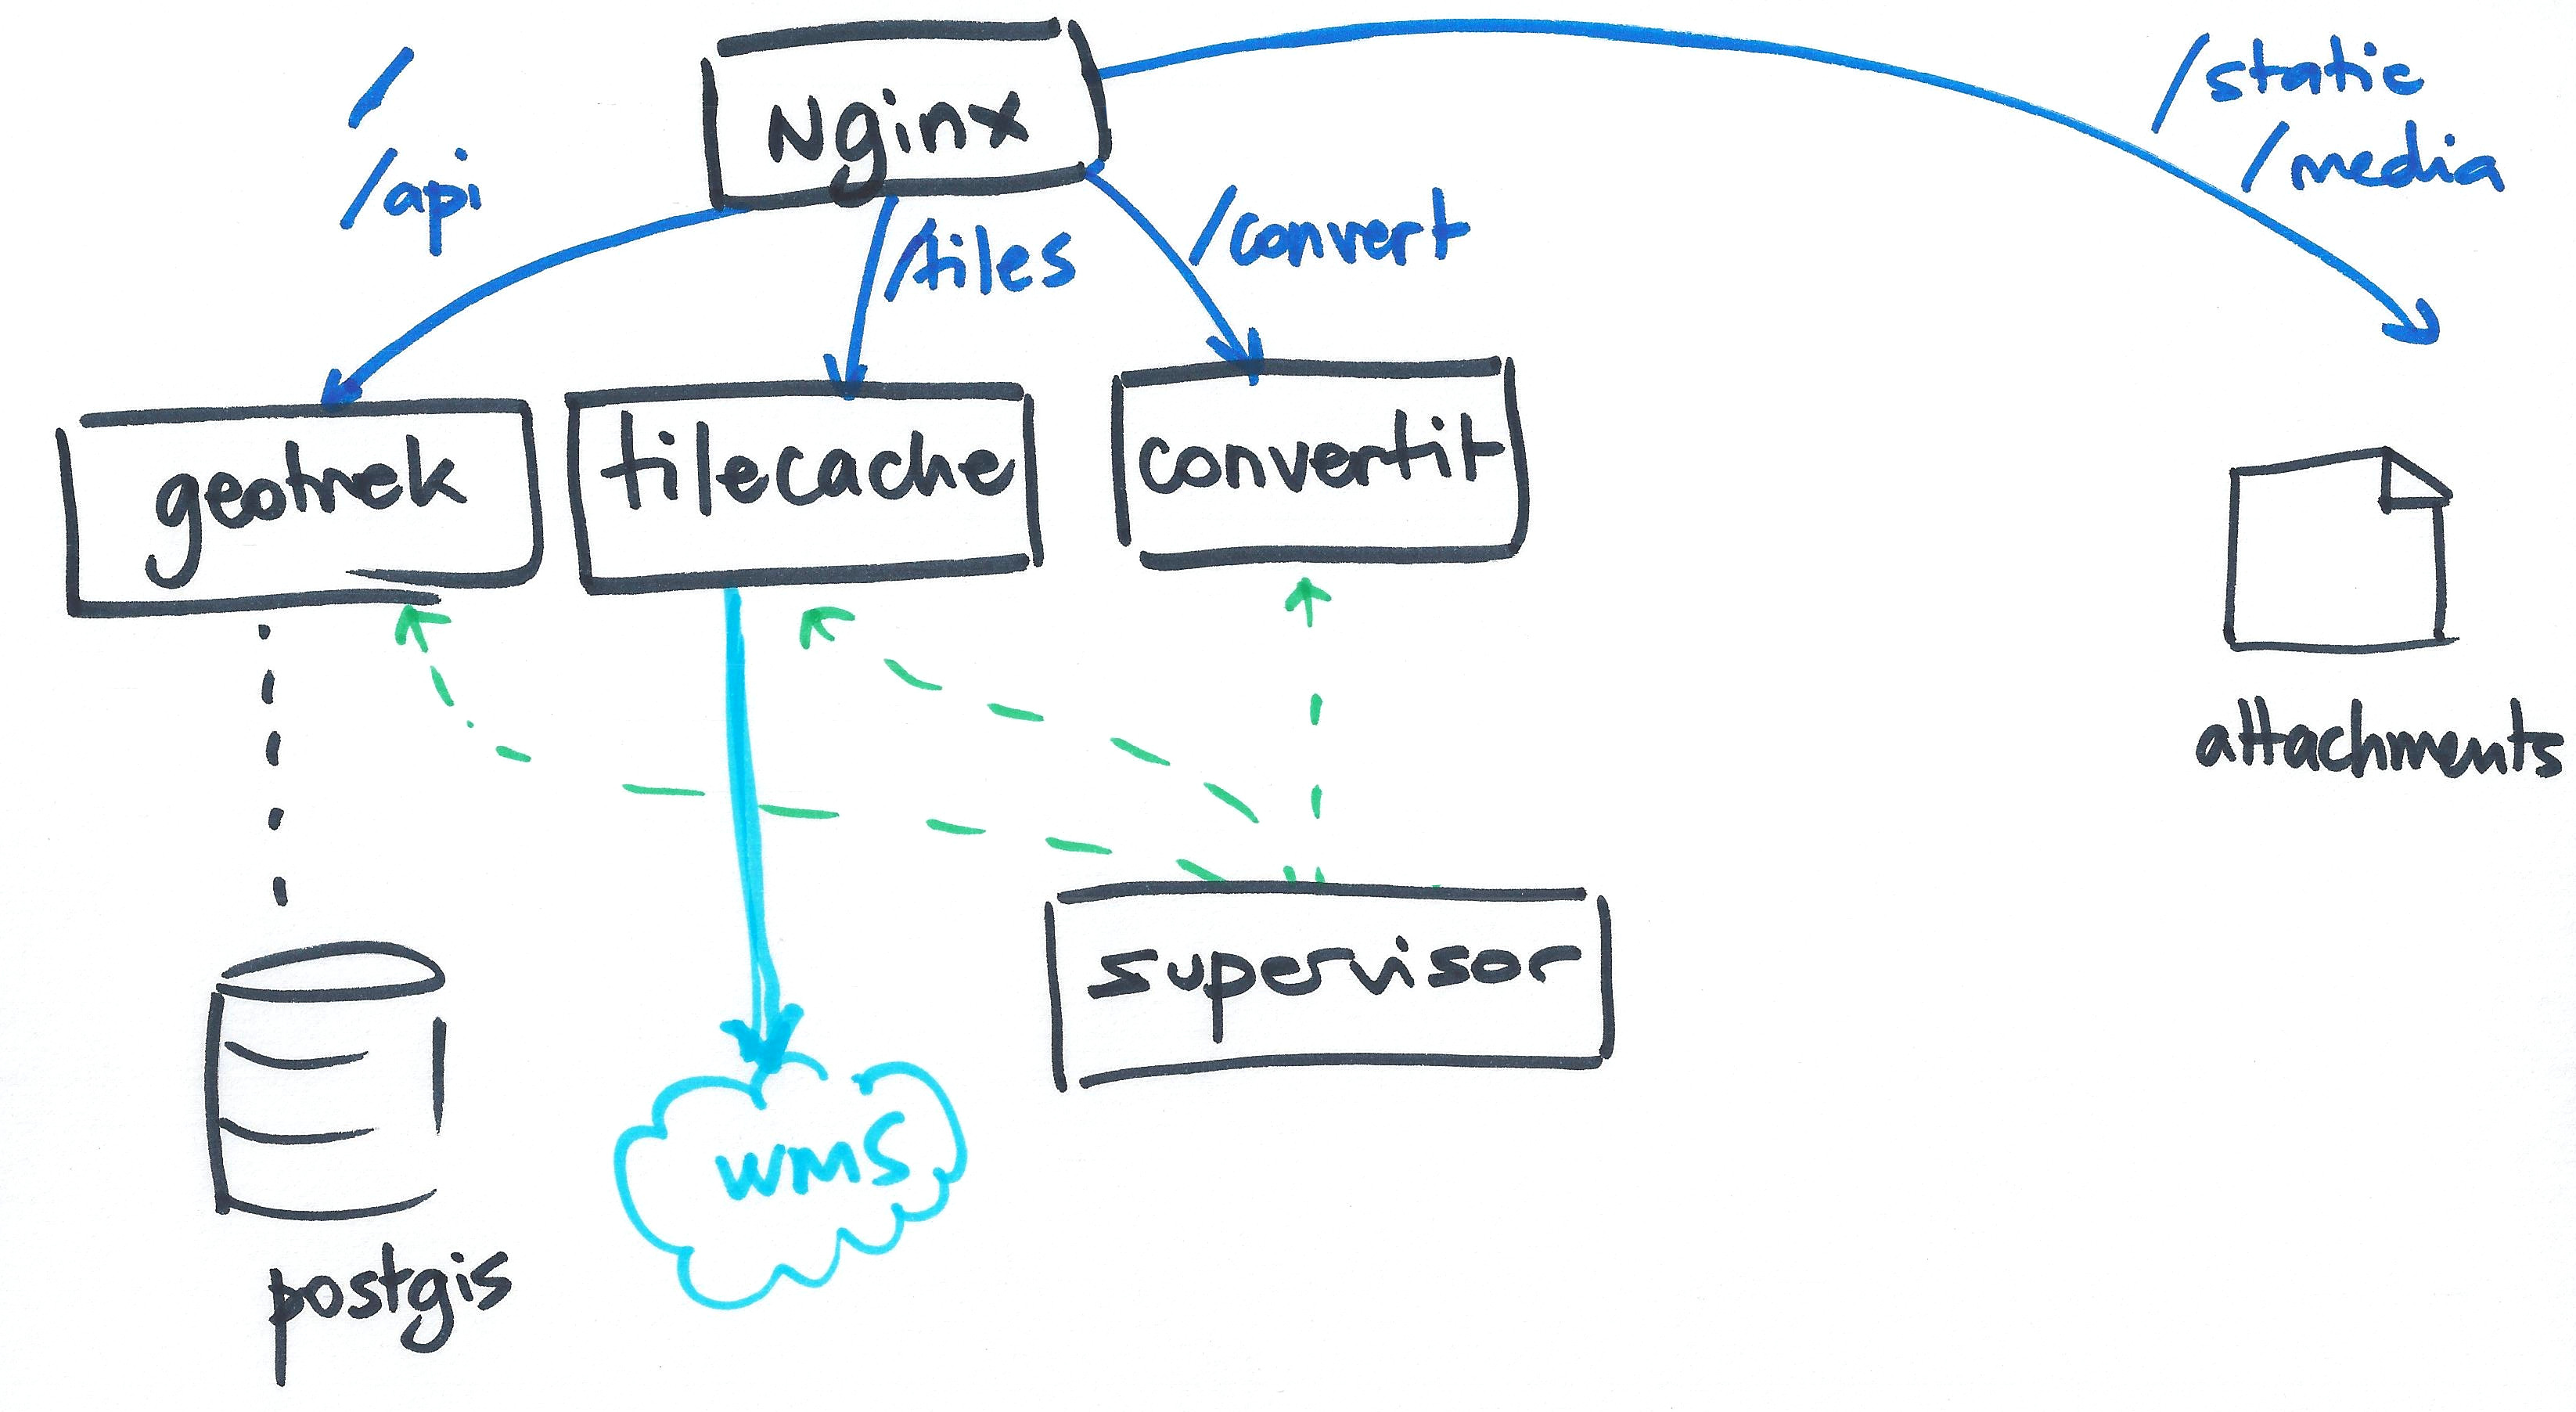 Nginx
/
/api
/tiles
/convert
/static
/media
geotrek
tilecache
convertit
attachments
supervisor
WMS
postgis